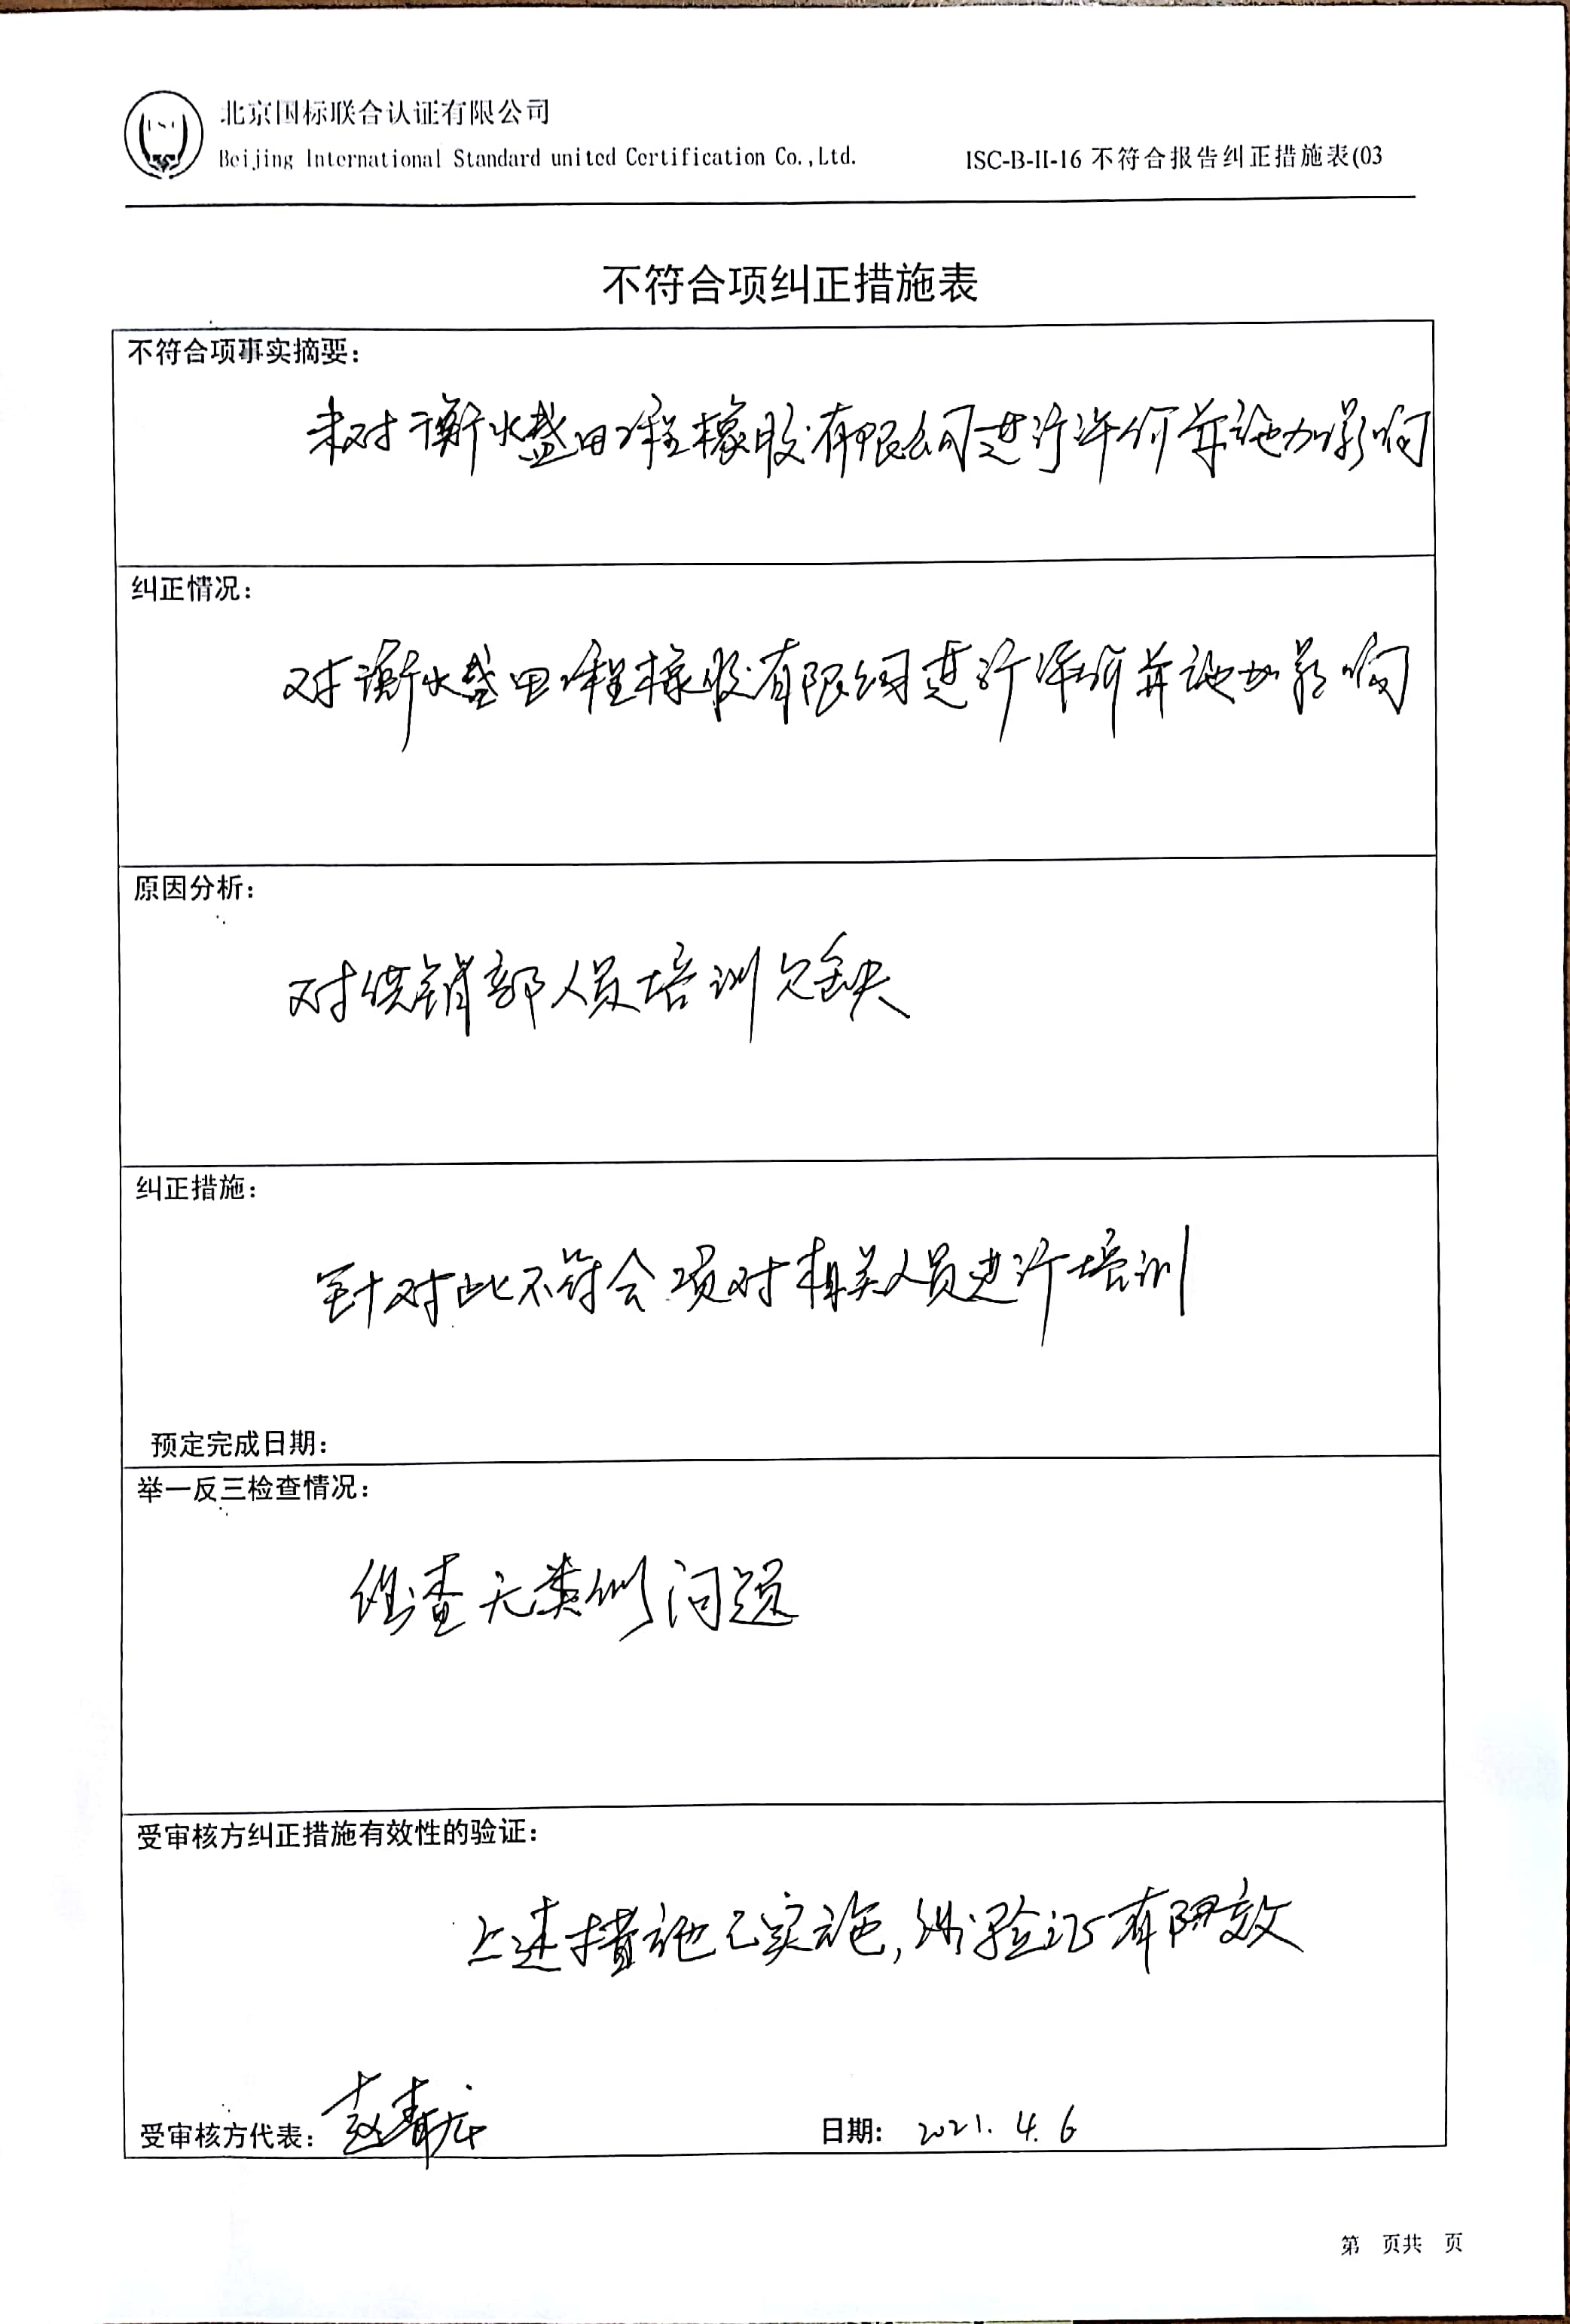 北京国标联合认证有限公司
Beijing International Standard united Certification Co.,Ltd.
ISC-B-II-16 不符合报告纠正措施表(03
不符合项纠正措施表
不符合项事实摘要：
未对衡水盛田程橡胶有限公司进行评价并施加影响
纠正情况：
对衡水盛田程橡胶有限公司进行评价并施加影响
原因分析：
对供销部人员培训欠缺
纠正措施：
针对此不符合项对相关人员进行培训
预定完成日期：
举一反三检查情况：
经查无类似问题
受审核方纠正措施有效性的验证：
上述措施已实施，经验证有效
受审核方代表：赵青龙
日期： 2021.4.6
第 页共 页